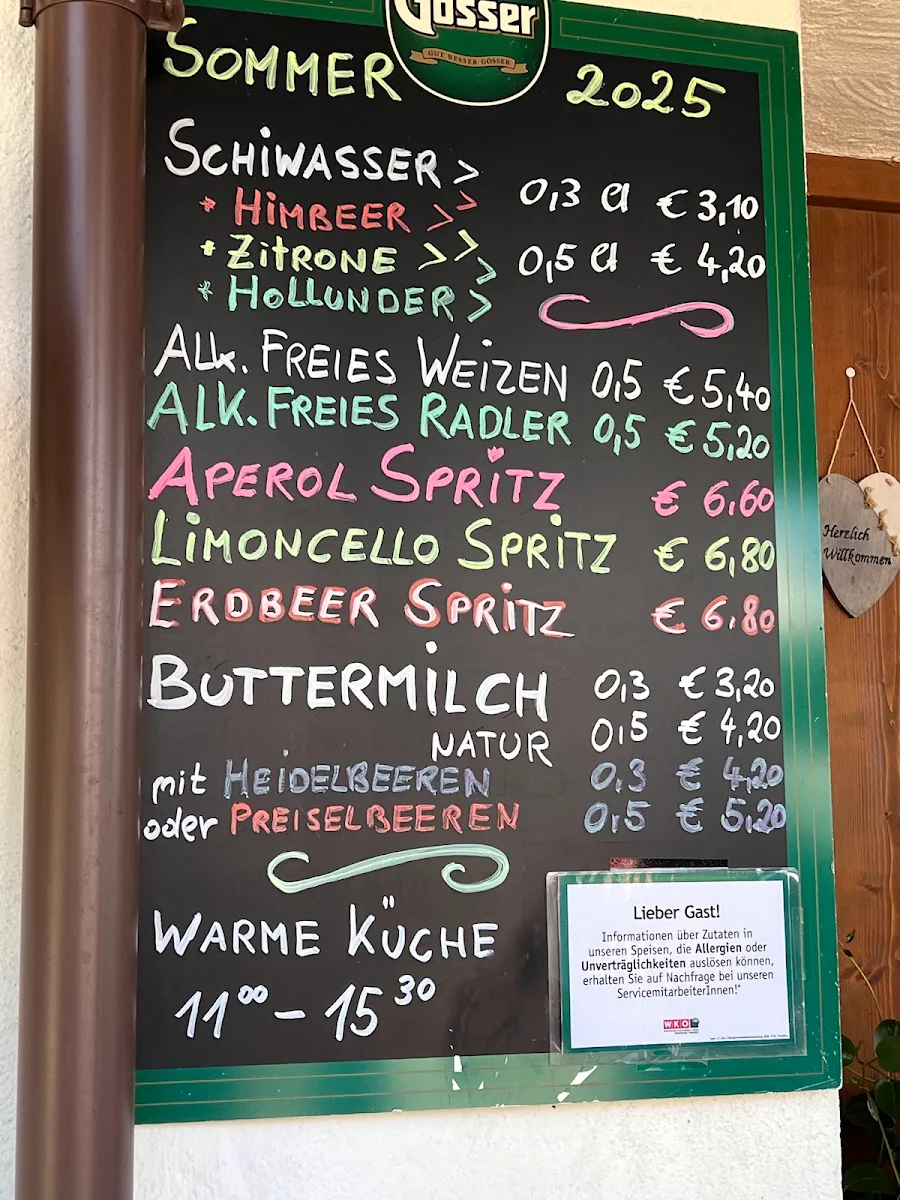 Gösser
GUT BESSER GÖSSER
SOMMER 2025
SCHIWASSER >
* HIMBEER >> 0,3 cl € 3,10
* ZITRONE >>> 0,5 cl € 4,20
* HOLLUNDER >
ALK. FREIES WEIZEN 0,5 € 5,40
ALK. FREIES RADLER 0,5 € 5,20
APEROL SPRITZ € 6,60
LIMONCELLO SPRITZ € 6,80
ERDBEER SPRITZ € 6,80
BUTTERMILCH 0,3 € 3,20
NATUR 0,5 € 4,20
mit HEIDELBEEREN 0,3 € 4,20
oder PREISELBEEREN 0,5 € 5,20
WARME KÜCHE
11⁰⁰ – 15³⁰
Lieber Gast!
Informationen über Zutaten in
unseren Speisen, die Allergien oder
Unverträglichkeiten auslösen können,
erhalten Sie auf Nachfrage bei unseren
ServicemitarbeiterInnen!*
WKO
Herzlich
Willkommen